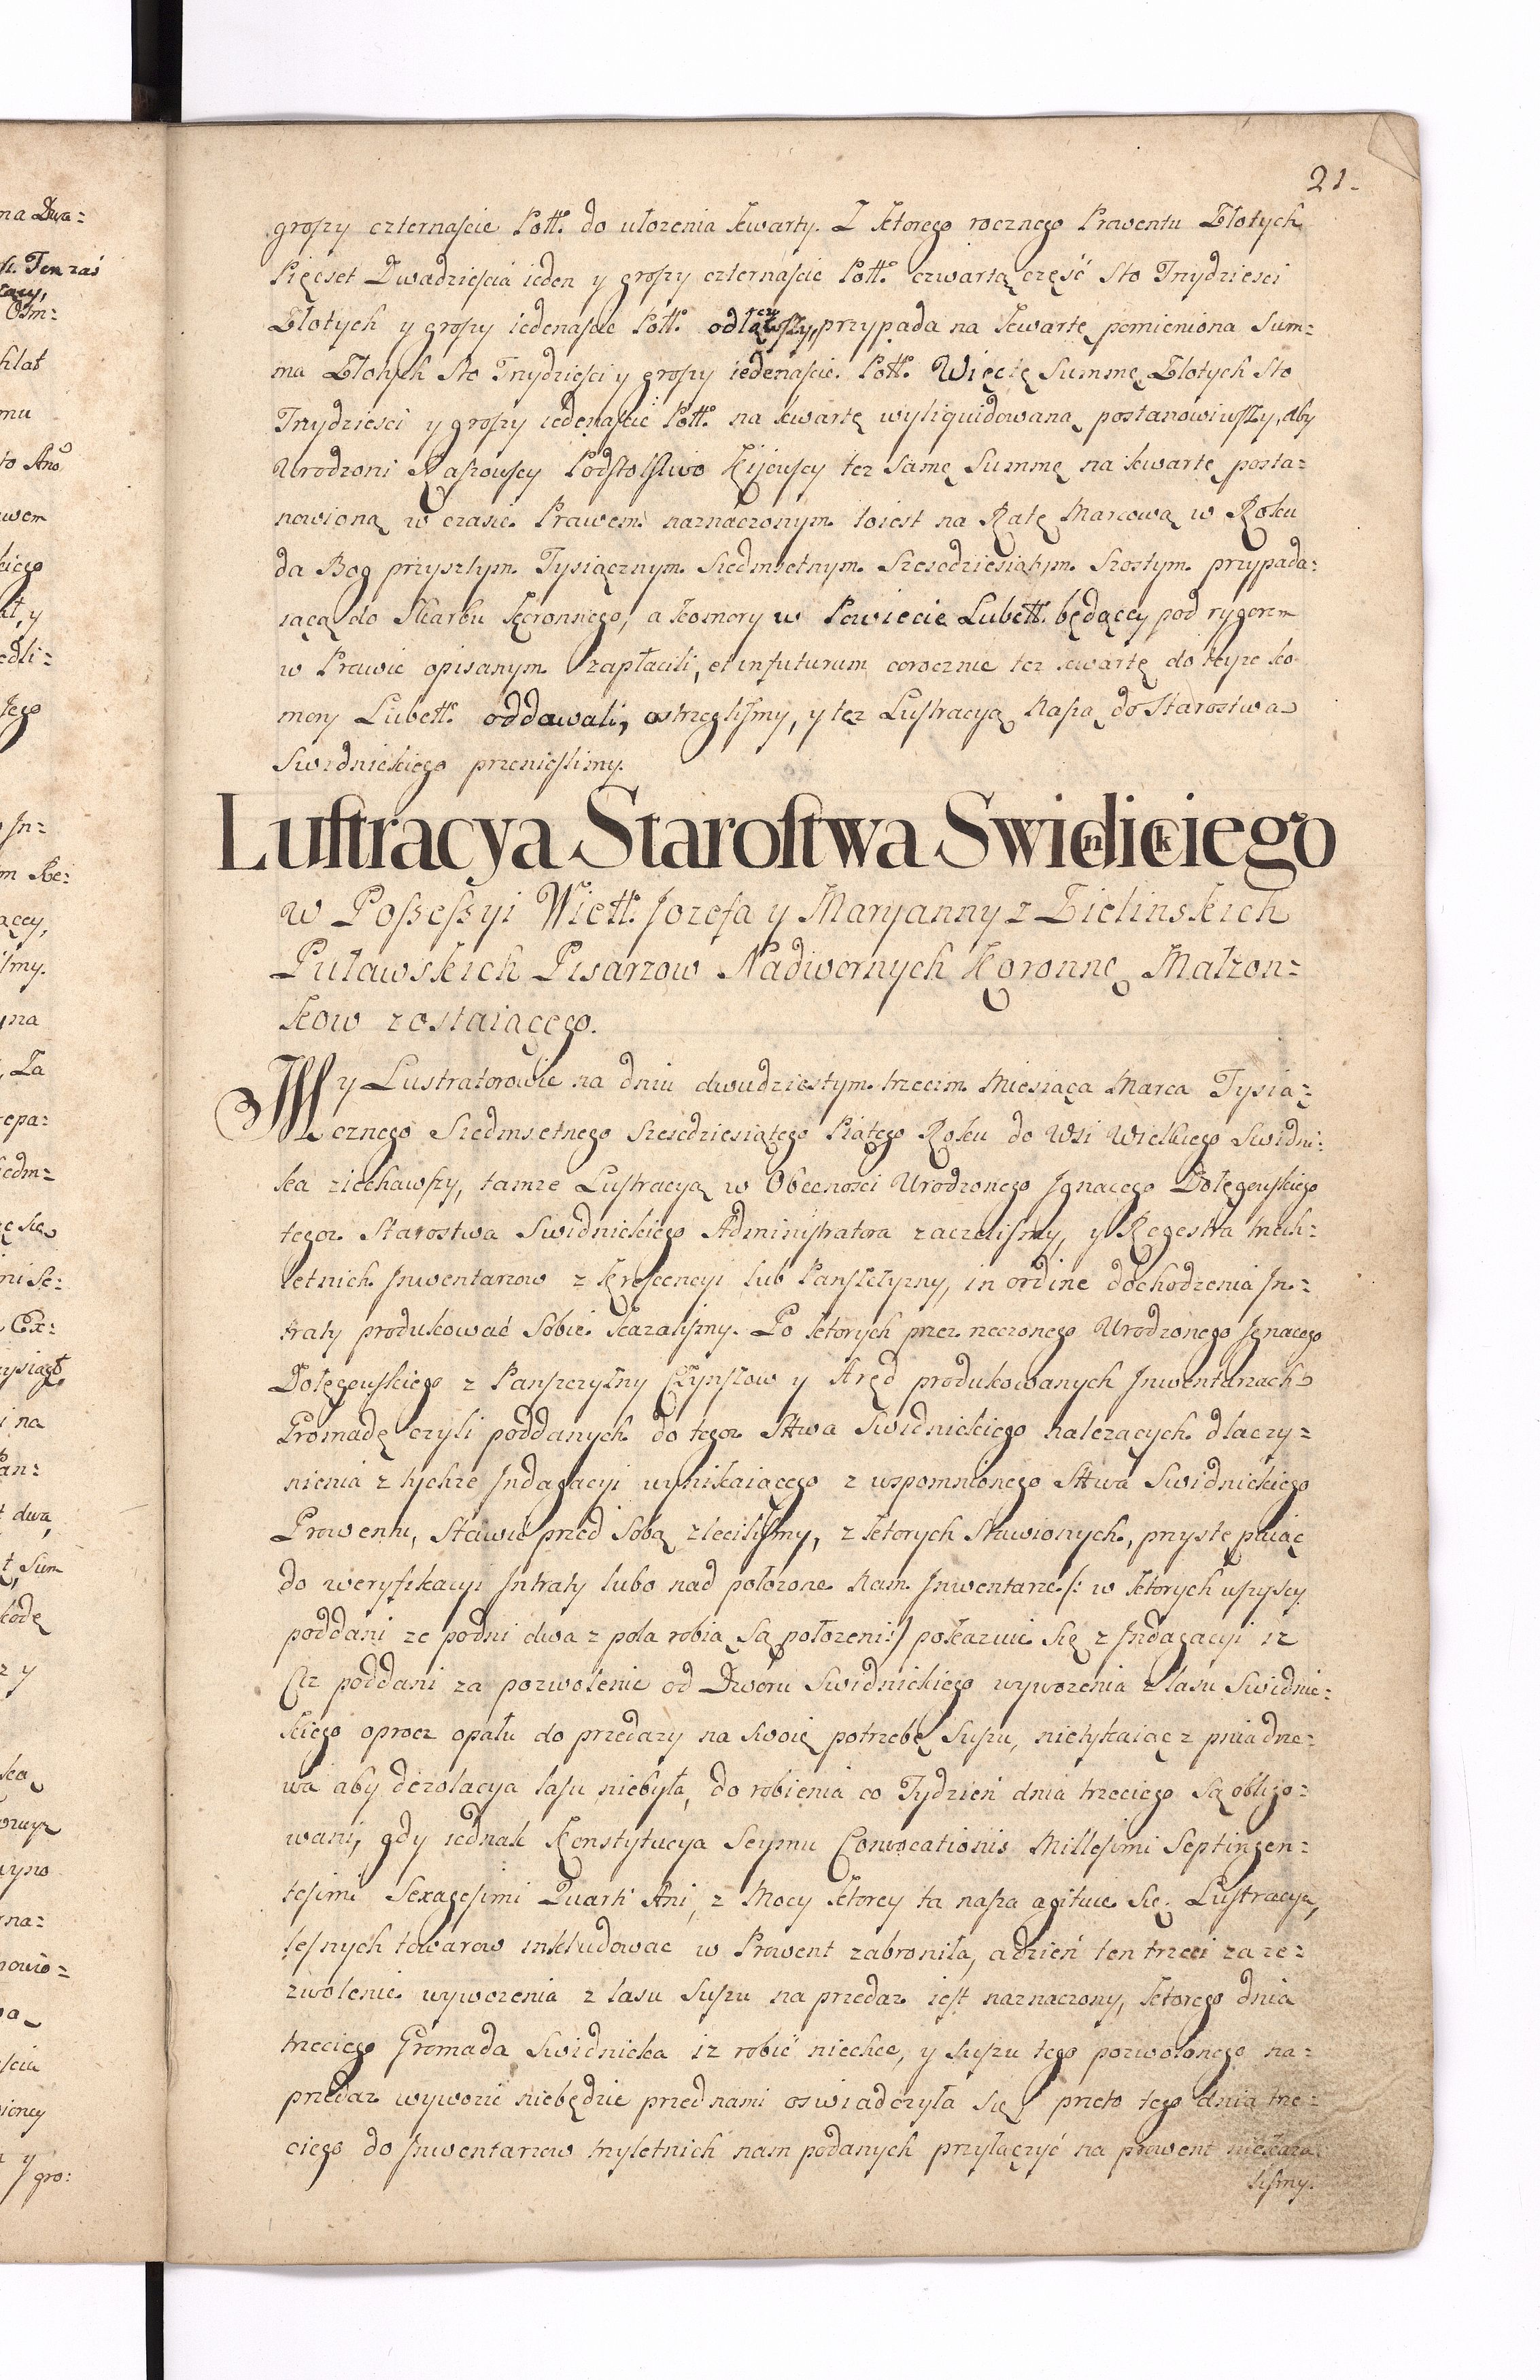 21.
groszy czternaście Poll. do ułozenia kwarty. Z ktorego rocznego Prowentu Złotych
Pięcset Dwadzieścia ieden y groszy czternaście Poll. czwartą część Sto Trzydziesci
Złotych y groszy iedenaście Poll. odłączywszy, przypada na kwartę pomieniona Sum=
ma Złotych Sto Trzydzieści y groszy iedenaście Poll. Więc tę Summę Złotych Sto
Trzydziesci y groszy iedenaście Poll. na kwartę wyliquidowaną postanowiwszy, aby
Urodzoni Raszowscy Podstolstwo Kijowscy tez Samę Summę na kwartę posta=
nowioną w czasie Prawem naznaczonym toiest na Ratę Marcową w Roku
da Bog przyszłym Tysiącznym Siedmsetnym Szescdziesiątym Szostym przypada=
iącą do Skarbu Koronnego, a Komory w Powiecie Lubell. będącey pod rygorem
w Prawie opisanym zapłacili, et in futurum corocznie tez kwartę do teyze ko
mory Lubell. oddawali, ostrzegliśmy, y tęz Lustracyą Naszą do Starostwa
Swidnickiego przenieslismy.
Lustracya Starostwa Swidnickiego
w Possessyi Wiell. Jozefa y Maryanny z Zielinskich
Puławskich Pisarzow Nadwornych Koronnę Małzon=
kow zostaiącego.
My Lustratorowie na dniu dwudziestym trzecim Miesiąca Marca Tysią=
cznego Siedmsetnego Szescdziesiątego Piątego Roku do Wsi Wielkiego Swidni=
ka ziechawszy, tamze Lustracyą w Obecnosci Urodzonego Jgnacego Dołęgowskiego
tegoz Starostwa Swidnickiego Administratora zaczeliśmy, y Regestra trech=
letnich Jnwentarzow z Krescencyi lub Panszczyzny, in ordine dochodzenia Jn=
traty produkować Sobie kazaliśmy. Po ktorych przez rzeczonego Urodzonego Jgnacego
Dołęgowskiego z Panszczyzny Czynszow y Aręd produkowanych Jnwentarzach
Gromadę czyli poddanych do tegoz Sttwa Swidnickiego nalezących dla czy=
nienia z tychze Jndagacyi wynikaiącego z wspomnionego Sttwa Swidnickiego
Prowentu, Stawić przed Sobą zleciliśmy, z ktorych Stawionych, przystępuiąc
do weryfikacyi Jntraty lubo nad połozone Nam Jnwentarze /: w ktorych wszyscy
poddani ze po dni dwa z pola robią są połozeni :/ pokazuie się z Jndagacyi iz
Ciz poddani za pozwolenie od Dworu Swidnickiego wywozenia z lasu Swidnic=
kiego oprocz opału do przedazy na swoię potrzebę suszu, nietykaiąc z pnia drze=
wa aby dezolacya lasu niebyła, do robienia co Tydzień dnia trzeciego są obligo=
wani, gdy iednak Konstytucya Seymu Convocationis Millesimi Septingen=
tesimi Sexagesimi Quarti Ani, z Mocy ktorey ta nasza agituie się Lustracya,
lesnych towarow inkludowac w Prowent zabroniła, a dzień ten trzeci za ze=
zwolenie wywozenia z lasu suszu na przedaz iest naznaczony, ktorego dnia
trzeciego Gromada Swidnicka iz robić niechce, y suszu tego pozwolonego na=
przedaz wywozić niebędzie przed nami oswiadczyła się, przeto tego dnia trze=
ciego do Jnwentarzow trzyletnich nam podanych przyłączyć na prowent niekaza=
liśmy.